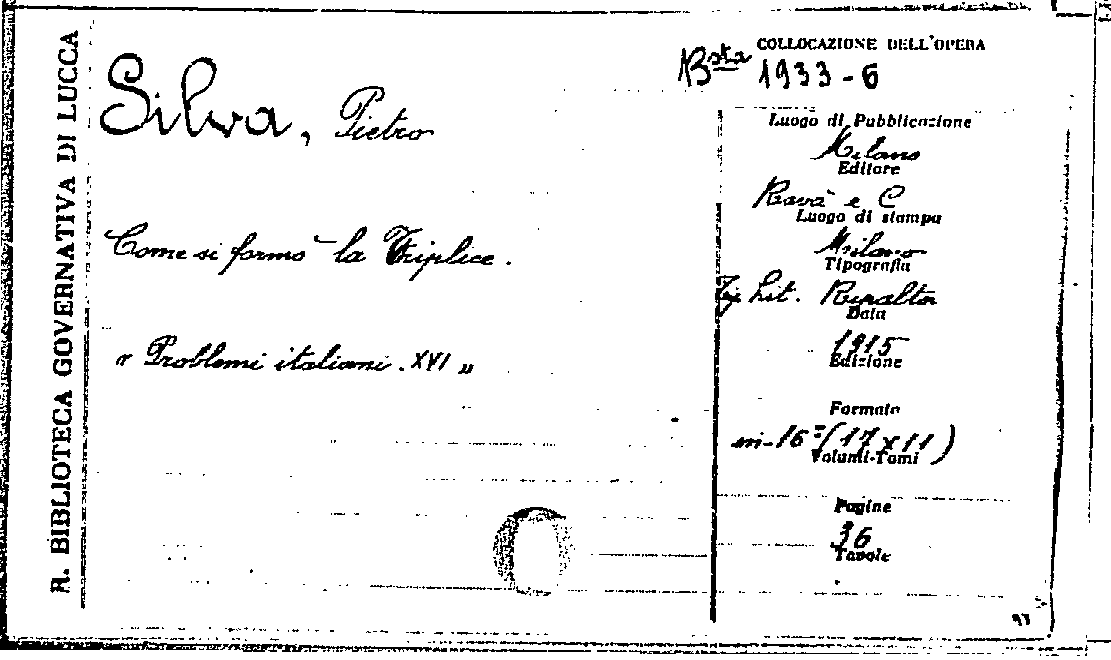 R. BIBLIOTECA GOVERNATIVA DI LUCCA
Silva, Pietro
Come si formò la Triplice.
" Problemi italiani. XVI "
COLLOCAZIONE DELL'OPERA
Bsta 1933-6
Luogo di Pubblicazione
Milano
Editore
Ravà e C
Luogo di stampa
Milano
Tipografia
Tip. Lit. Ripalta
Data
1915
Edizione
Formato
in-16° (17x11)
Volumi-Tomi
Pagine
36
Tavole